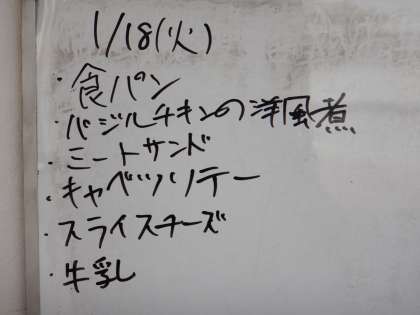 1/18(火)
・食パン
・バジルチキンの洋風煮
・ミートサンド
・キャベツソテー
・スライスチーズ
・牛乳